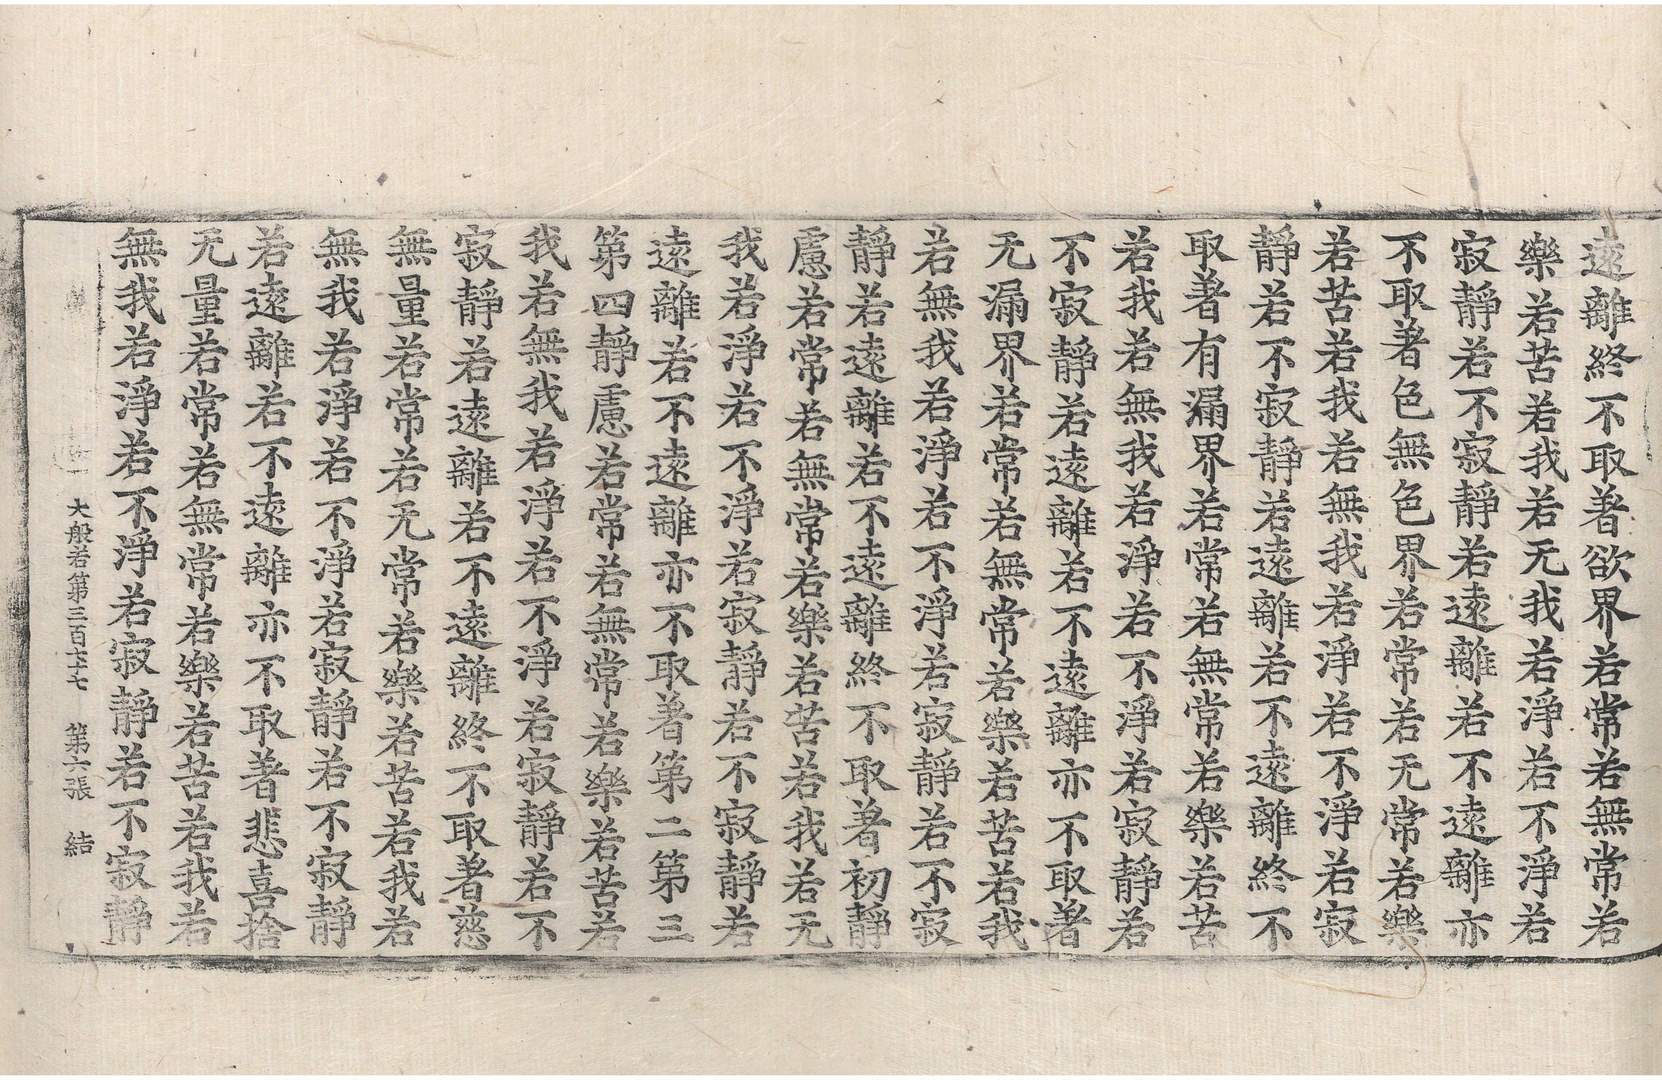 遠離終不取著欲界若常若無常若
樂若苦若我若无我若淨若不淨若
寂靜若不寂靜若遠離若不遠離亦
不取著色無色界若常若无常若樂
若苦若我若無我若淨若不淨若寂
靜若不寂靜若遠離若不遠離終不
取著有漏界若常若無常若樂若苦
若我若無我若淨若不淨若寂靜若
不寂靜若遠離若不遠離亦不取著
无漏界若常若無常若樂若苦若我
若無我若淨若不淨若寂靜若不寂
靜若遠離若不遠離終不取著初靜
慮若常若無常若樂若苦若我若无
我若淨若不淨若寂靜若不寂靜若
遠離若不遠離亦不取著第二第三
第四靜慮若常若無常若樂若苦若
我若無我若淨若不淨若寂靜若不
寂靜若遠離若不遠離終不取著慈
無量若常若无常若樂若苦若我若
無我若淨若不淨若寂靜若不寂靜
若遠離若不遠離亦不取著悲喜捨
无量若常若無常若樂若苦若我若
無我若淨若不淨若寂靜若不寂靜
大般若第三百七十七 第六張 結